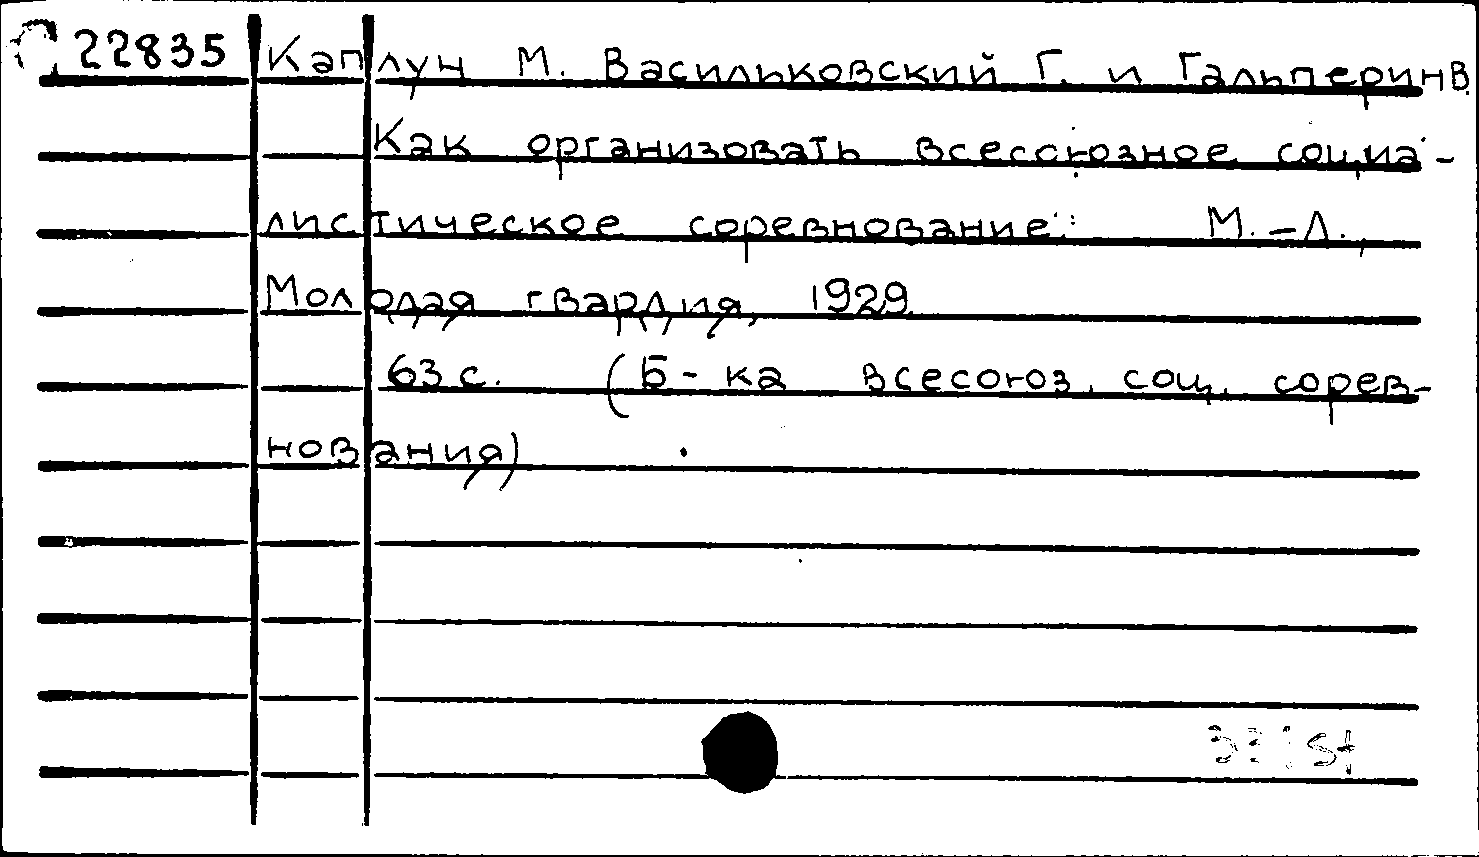 22835 Каплун М. Васильковский Г. и Гальперин В.
Как организовать всесоюзное социа-
листическое соревнование: М.-Л.,
Молодая гвардия, 1929.
63 с. (Б-ка всесоюз. соц. сорев-
нования)